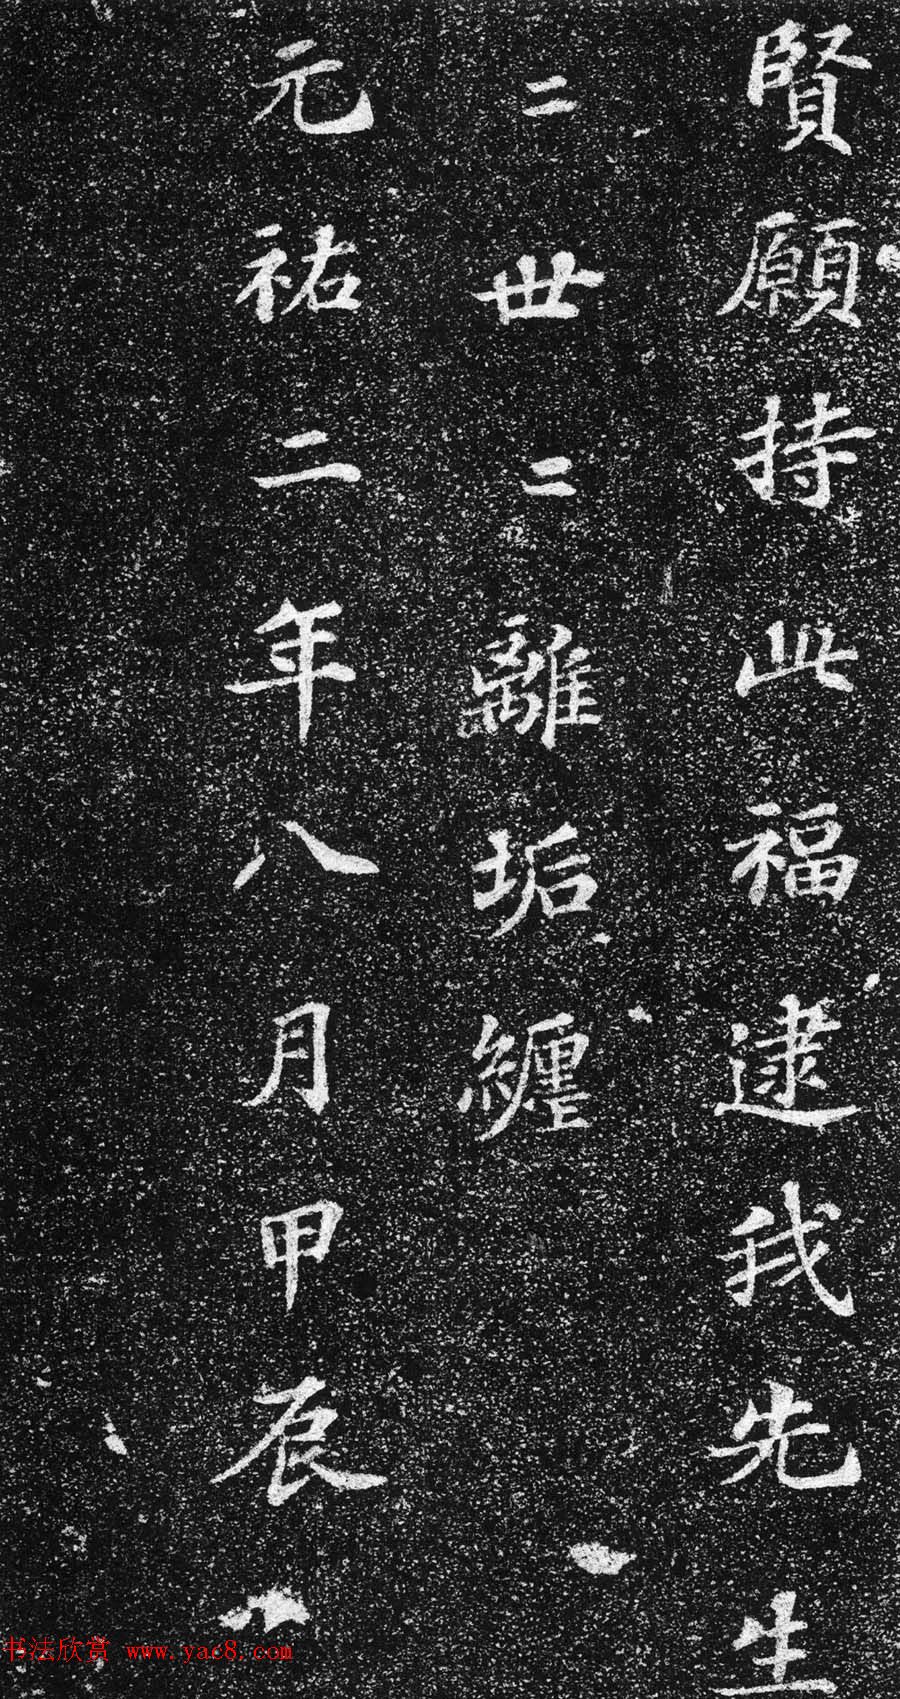 賢願持此福逮我先生
二世二離垢纏
元祐二年八月甲辰
书法欣赏 www.yac8.com